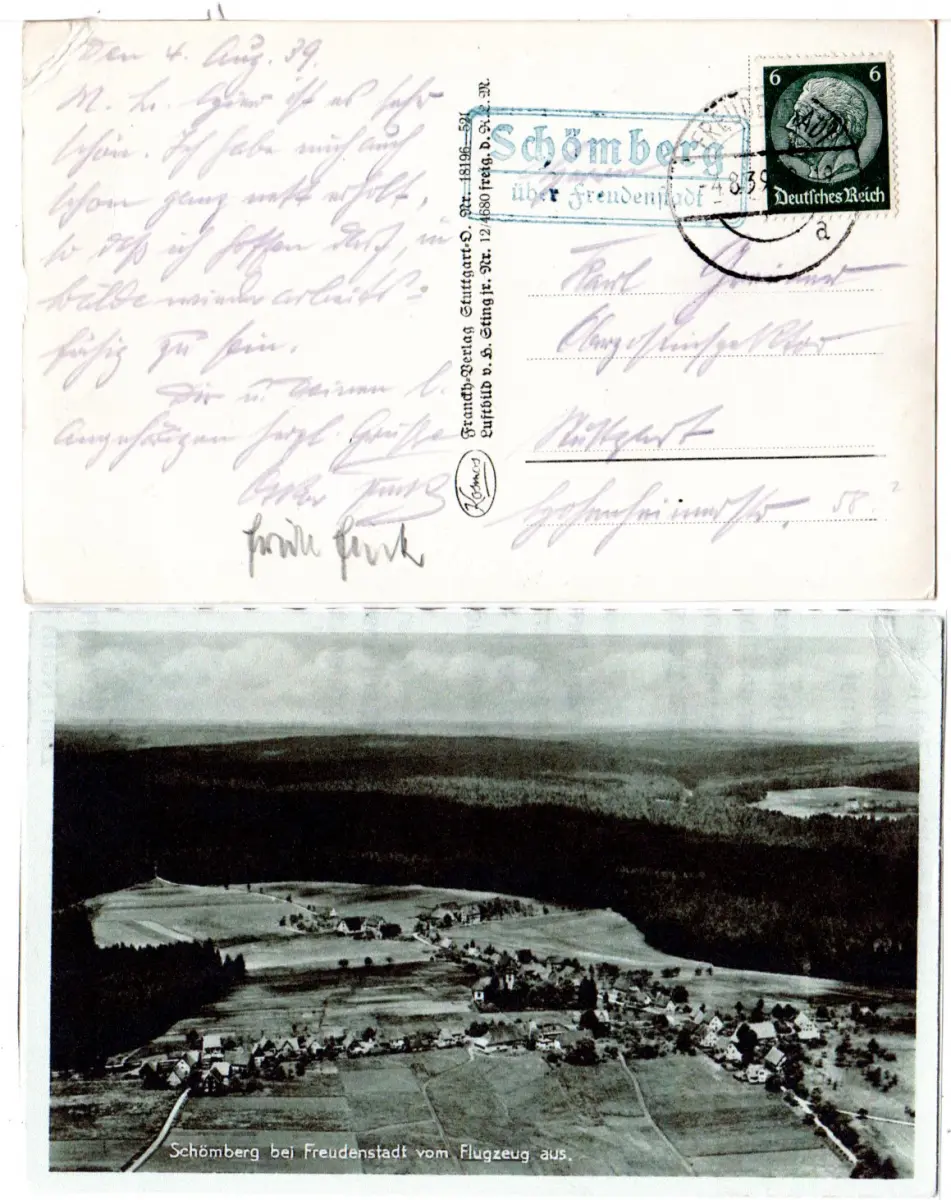 Den 4. Aug. 39.
M. L. Hier ist es sehr
schön. Ich habe mich auch
schon ganz nett erholt,
so daß ich hoffen darf, in
Bälde wieder arbeits-
fähig zu sein.
Dir u. Deinen l.
Angehörigen herzl. Grüße
Franckh-Verlag Stuttgart-O. Nr. 18196-521
Luftbild v. H. Sting jr. Nr. 12/4680 freig. d. R. L. M.
Kosmos
Schömberg
über Freudenstadt
-4.8.39
a
6 6
Deutsches Reich
Herrn
Karl
Oberpostinspektor
Stuttgart
Hohenheimerstr. 58.
Schömberg bei Freudenstadt vom Flugzeug aus.